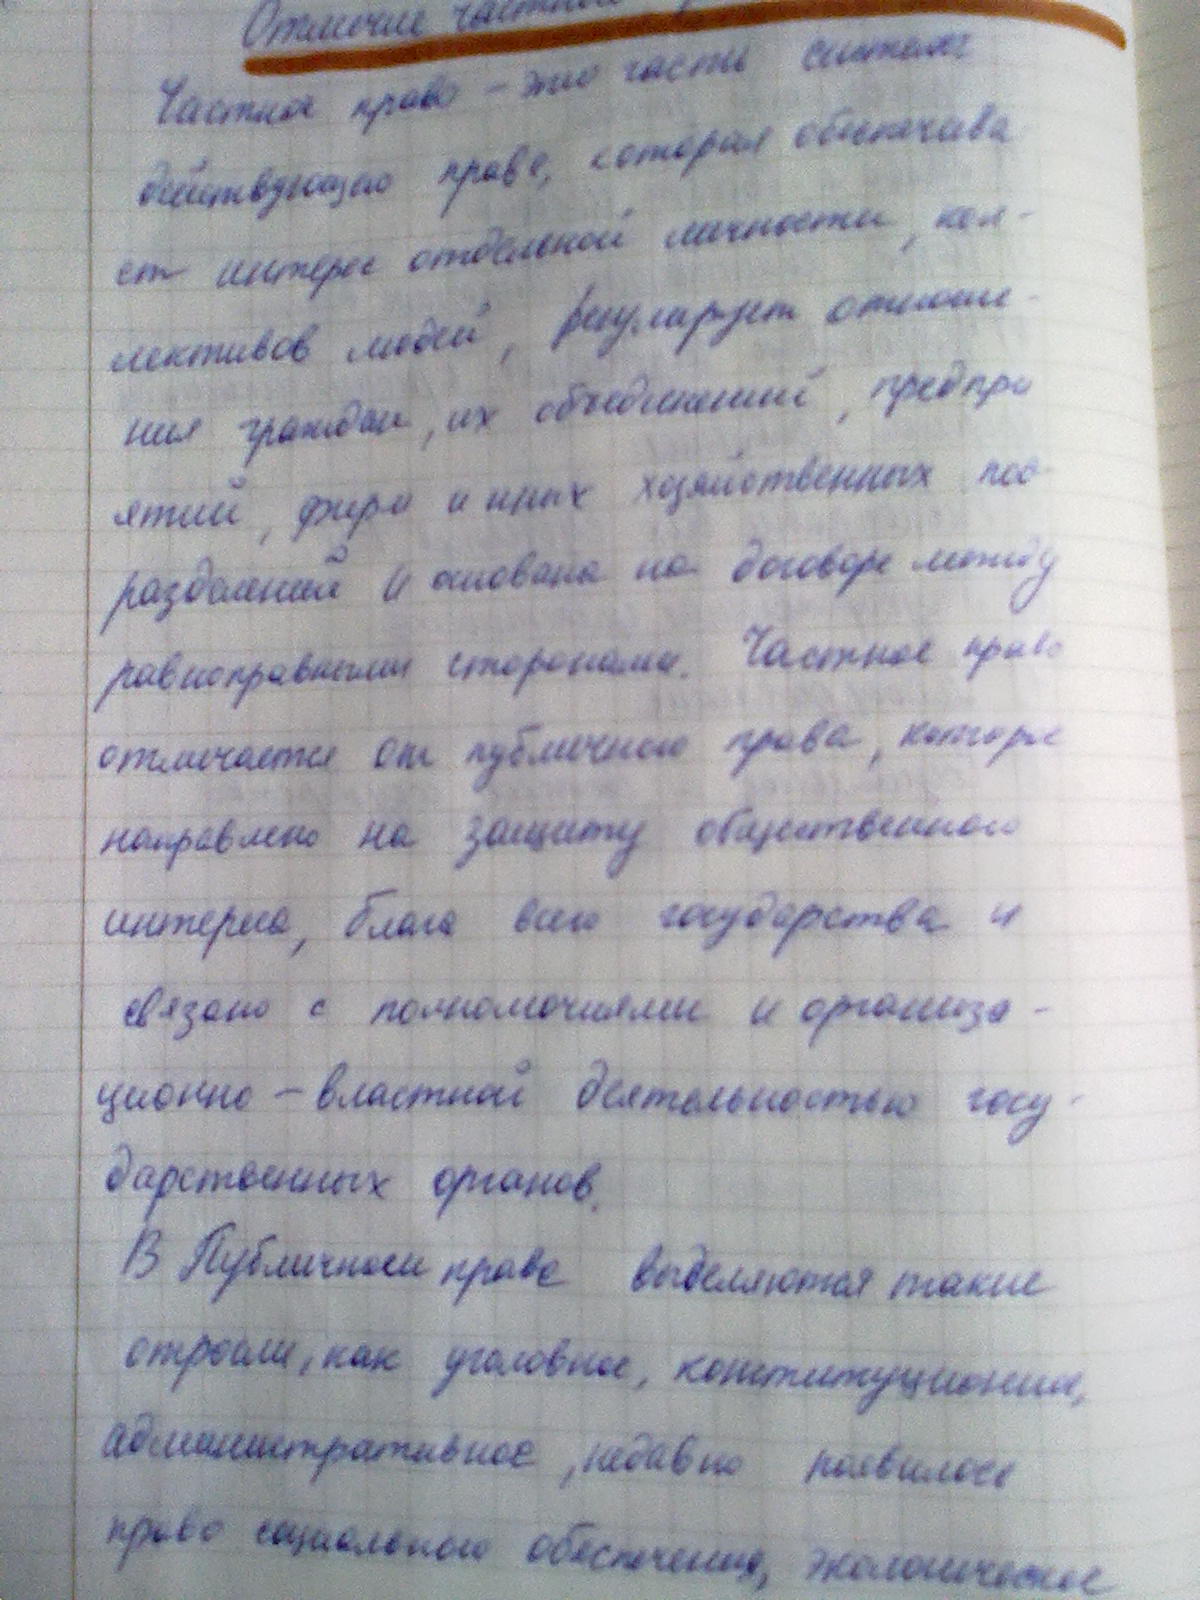 Отличие частного
Частное право – это часть системы
действующего права, которая обеспечива
ет интерес отдельной личности, кол-
лективов людей, регулирует отноше-
ния граждан, их объединений, предпри
ятий, фирм и иных хозяйственных под-
разделений и основана на договоре между
равноправными сторонами. Частное право
отличается от публичного права, которое
направлено на защиту общественного
интереса, блага всего государства и
связано с полномочиями и организа-
ционно – властной деятельностью госу-
дарственных органов.
В Публичном праве выделяются такие
отрасли, как уголовное, конституционное,
административное, недавно появилось
право социального обеспечения, экологическое